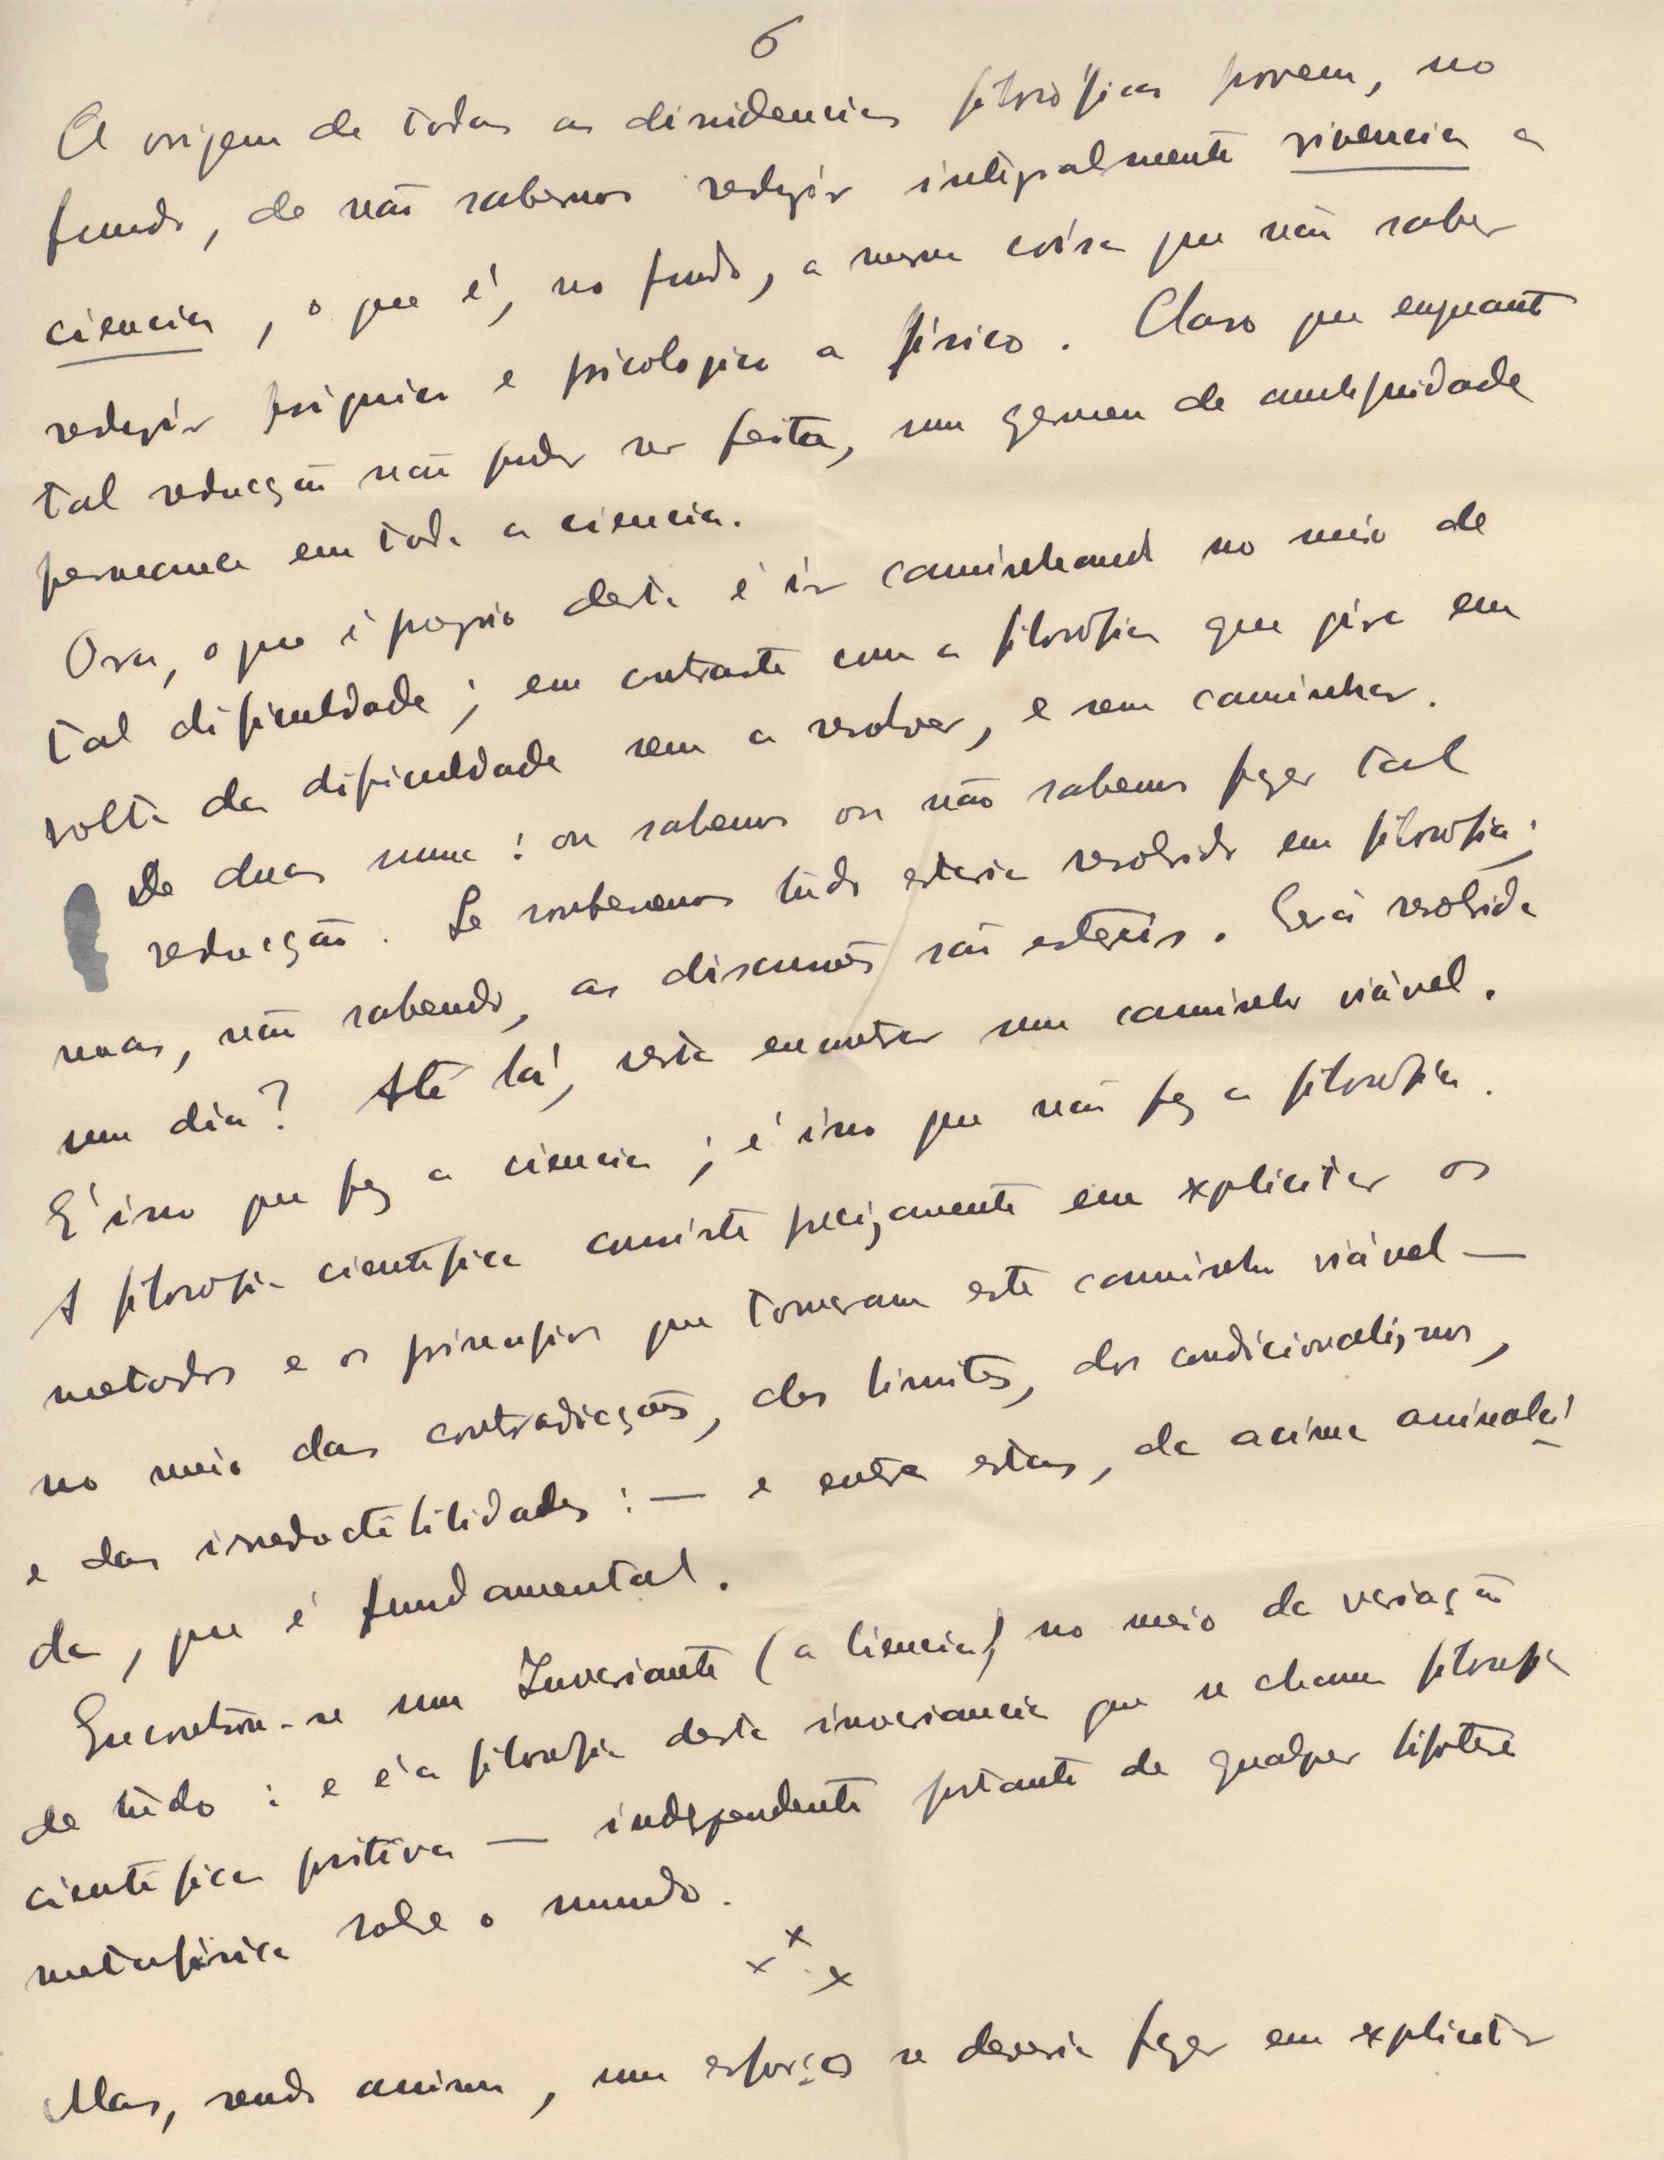 6
A origem de todas as dissidencias filosóficas provem, no
fundo, de não sabermos reduzir integralmente vivencia a
ciencia, o que é, no fundo, a mesma coisa que não saber
reduzir psiquico e psicologico a fisico. Claro que enquanto
tal reducção não puder ser feita, um germen de ambiguidade
permanece em toda a ciencia.
Ora, o que é proprio desta é ir caminhando no meio de
tal dificuldade; em contraste com a filosofia que gira em
volta da dificuldade sem a resolver, e sem caminhar.
De duas uma: ou sabemos ou não sabemos fazer tal
reducção. Se soubessemos tudo estaria resolvido em filosofia;
mas, não sabendo, as discussões são estereis. Será resolvida
um dia? Até lá, resta encontrar um caminho viável.
É isso que faz a ciencia; é isso que não faz a filosofia.
A filosofia cientifica consiste precizamente em explicitar os
metodos e os principios que tomaram este caminho viável —
no meio das contradicções, dos limites, dos condicionalizmos,
e das irreductibilidades: — e entre estas, da acima assinalá
da, que é fundamental.
Encontrou-se um Invariante (a Ciencia) no meio da variação
de tudo: e é a filosofia desta invariancia que se chama filosofia
cientifica positiva — independente portanto de qualquer hipotese
metafisica sobre o mundo.
x x x
Mas, sendo assim, um esforço se deveria fazer em explicitar